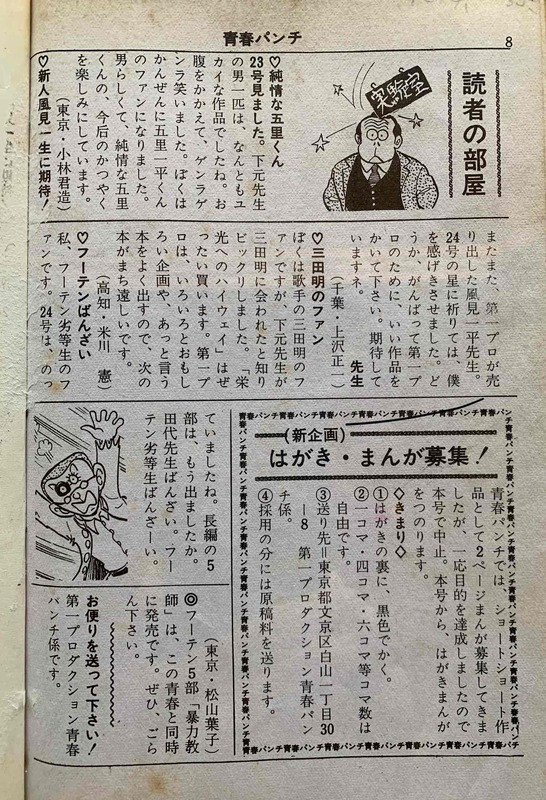 青春パンチ
8
読者の部屋
実験室
♡純情な五里くん
23号見ました。下元先生
の男一匹は、なんともユ
カイな作品でしたね。お
腹をかかえて、ゲンラゲ
ンラ笑いました。ぼくは
かんぜんに五里一平くん
のファンになりました。
男らしくて、純情な五里
くんの、今后のかつやく
を楽しみにしています。
(東京・小林君造)
♡新人風見一生に期待!
またまた、第一プロが売
り出した風見一平先生。
24号の星に祈りては、僕
を感げきさせました。ど
うか、がんばって第一プ
ロのために、いい作品を
かいて下さい。期待して
いますネ。 先生
(千葉・上沢正一)
♡三田明のファン
ぼくは歌手の三田明のフ
ァンですが、下元先生が
三田明に会われたと知り
ビックリしました。「栄
光へのハイウェイ」はぜ
ったい買います。第一プ
ロは、いろいろとおもし
ろい企画や、あっと言う
本をよく出すので、次の
本がまち遠しいです。
(高知・米川 憲)
♡フーテンばんざい
私、フーテン劣等生のフ
ァンです。24号は、のっ
ていましたね。長編の5
部は、もう出ましたか。
田代先生ばんざい。フー
テン劣等生ばんざーい。
(東京・松山葉子)
◎フーテン5部「暴力教
師」は、この青春と同時
に発売です。ぜひ、ごら
ん下さい。
お便りを送って下さい!
第一プロダクション青春
パンチ係です。
青春パンチ青春パンチ青春パンチ青春パンチ青春パンチ青春パンチ青春パンチ
(新企画)
はがき・まんが募集!
青春パンチでは、ショートショート作
品として2ページまんが募集してきま
したが、一応目的を達成しましたので
本号で中止。本号から、はがきまんが
をつのります。
◇きまり◇
①はがきの裏に、黒色でかく。
②一コマ・四コマ・六コマ等コマ数は
自由です。
③送り先=東京都文京区白山一丁目30
―8 第一プロダクション青春パン
チ係。
④採用の分には原稿料を送ります。